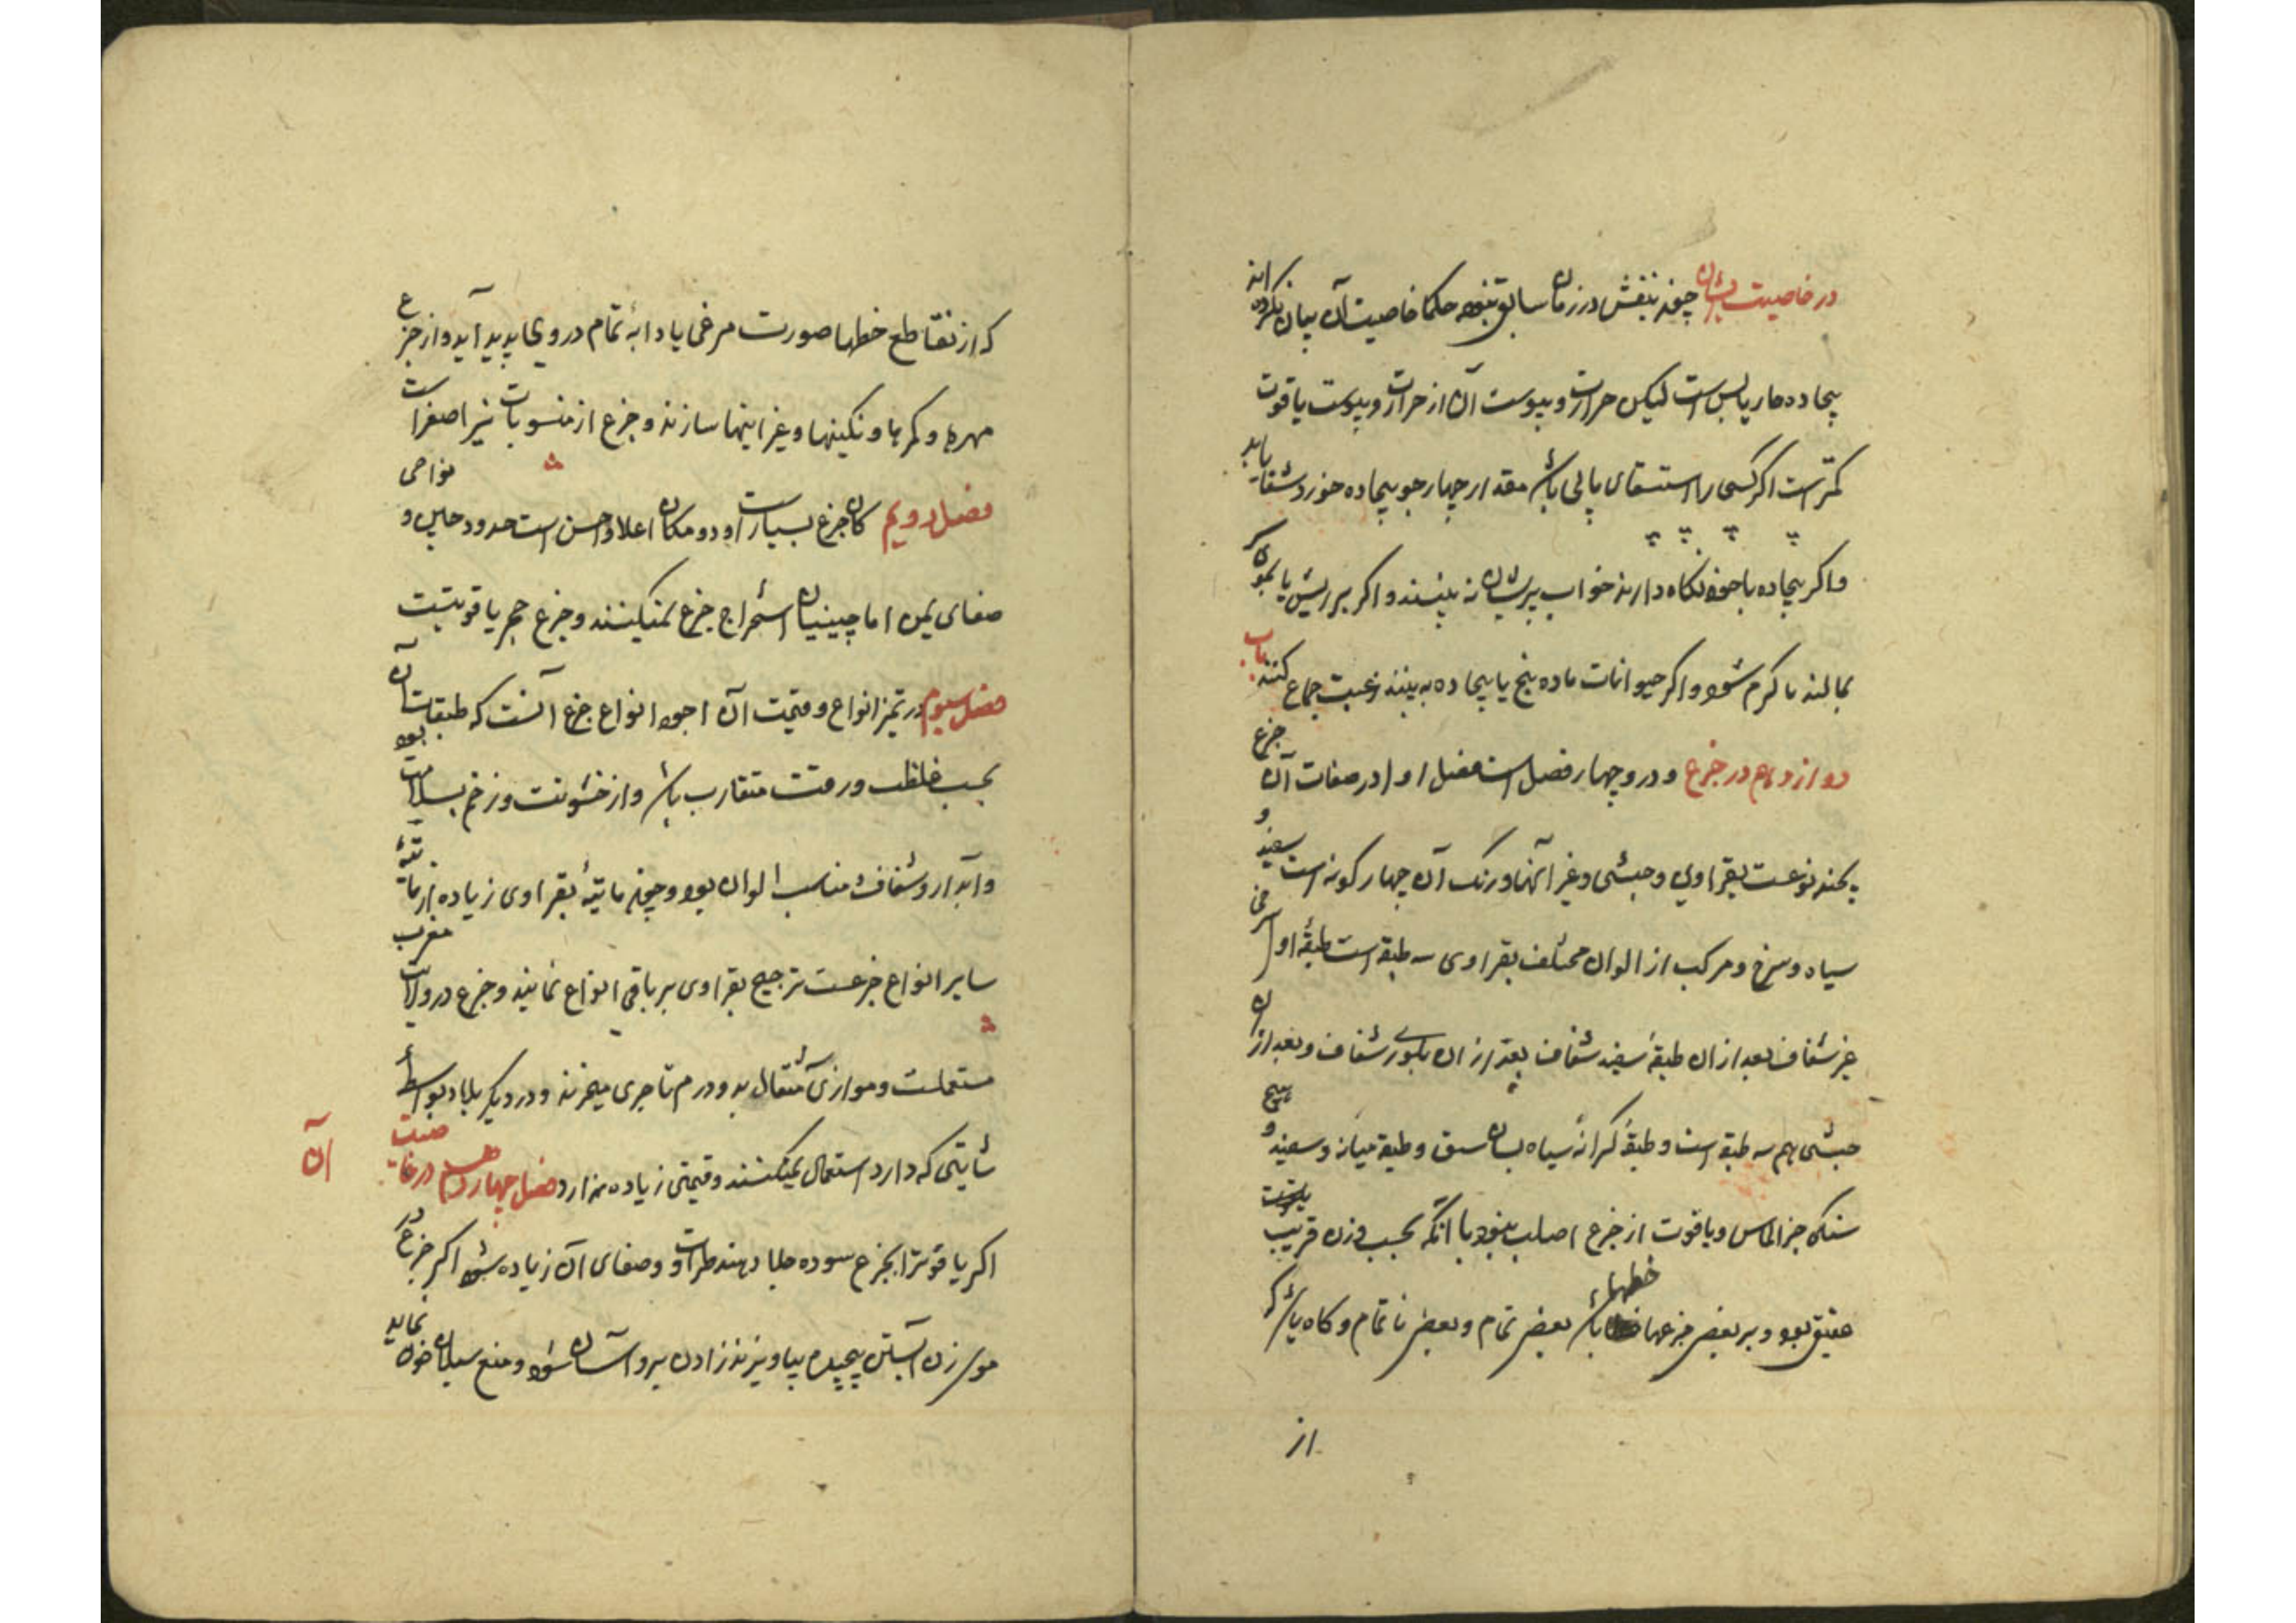 در خاصیت ایشان چون بنفش در زمان سابق نبوده حکما خاصیت آن بیان نکرده اند
بیجاده حار یابس است لیکن حرارت و یبوست آن از حرارت و یبوست یاقوت
کمتر است اکر کسی را استسقای باشد مقدار چهار جو بیجاده خورد شفا یابد
و اکر بیجاده با خود نکاه دارند خواب پریشان نه بینند و اکر بر ریش یا بموی سر
بمالند تا کرم شود و اکر حیوانات ماده بیجاده به بینند رغبت جماع کنند باب
دوازدهم در جزع و درو چهار فصل است فصل اول در صفات آن جزع
بچند نوعست بقراوی و حبشی و غیر آنها و رنک آن چهار کونه است سفید و
سیاه و سرخ و مرکب از الوان مختلف بقراوی سه طبقه است طبقهٔ اول سرخی
غیر شفاف بعد از ان طبقهٔ سفید شفاف بعد از ان بلوری شفاف و بعد از ان
حبشی هم سه طبقه است و طبقهٔ کرانهٔ سیاه بسان سبق و طبقه میانه و سفید و هیچ
سنکی جز الماس و یاقوت از جزع اصلب نبود با آنکه بحسب وزن قریب
عقیق بود و بر بعضی جزعها خطها باشد بعضی تمام و بعضی نا تمام و کاه باشد که
از
که از تقاطع خطها صورت مرغی یا دابهٔ تمام در وی پدید آید و از جزع
مهرها و کمرها و نکینها و غیر اینها سازند و جزع از منسوبات نیز اصغر است
فصل دویم کان جزع بسیار است و دو مکان اعلا و احسن است حدود چین و نواحی
صفای یمن اما چینیان استخراج جزع نمیکنند و جزع حجر یاقوتیست
فصل سیوم در تمیز انواع و قیمت آن اجود انواع جزع آنست که طبقات آن
بحسب غلظت و رقت متقارب باشد و از خشونت و زخم بسلامت بود
و آبدار و شفاف مناسب الوان بود و چون مائیهٔ بقراوی زیاده از مائیهٔ
سایر انواع جزعست ترجیح بقراوی بر باقی انواع نمایند و جزع در ولایت مغرب
مستعملست و موازی مثقال بدو درم تاجری میخرند و در دیکر بلاد بواسطهٔ
شأیتی که دارد استعمال نمیکنند و قیمتی زیاده ندارد فصل چهارم در خاصیت آن
اکر یاقوترا بجزع سوده جلا دهند طراوت و صفای آن زیاده شود اکر جزع در
موی زن آبستن پیچیده بیاویزند زادن برو آسان شود و منع سیلان خون نماید